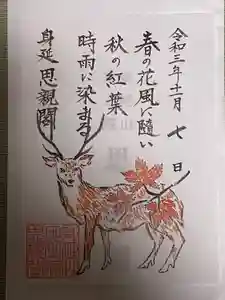 令和三年十一月七日
春の花風に随い
秋の紅葉
時雨に染まる
身延思親閣